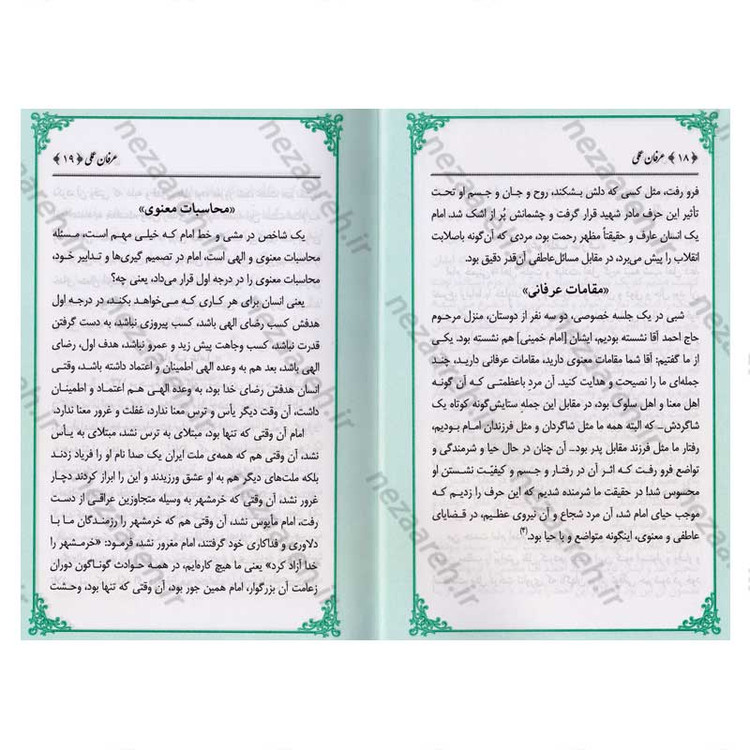 ﴿۱۸﴾ عرفان عملی
فرو رفت، مثل کسی که دلش بشکند، روح و جان و جسم او تحت
تأثیر این حرف مادر شهید قرار گرفت و چشمانش پُر از اشک شد. امام
یک انسان عارف و حقیقتاً مظهر رحمت بود، مردی که آن‌گونه باصلابت
انقلاب را پیش می‌برد، در مقابل مسائل عاطفی آن‌قدر دقیق بود.
«مقامات عرفانی»
شبی در یک جلسه خصوصی، دو سه نفر از دوستان، منزل مرحوم
حاج احمد آقا نشسته بودیم، ایشان [امام خمینی] هم نشسته بود. یکی
از ما گفتیم: آقا شما مقامات معنوی دارید، مقامات عرفانی دارید، چند
جمله‌ای ما را نصیحت و هدایت کنید. آن مردِ باعظمتی که آن گونه
اهل معنا و اهل سلوک بود، در مقابل این جمله ستایش‌گونه کوتاه یک
شاگردش ـ که البته همه ما مثل شاگردان و مثل فرزندان امام بودیم،
رفتار ما مثل فرزند مقابل پدر بود ـ آن چنان در حال حیا و شرمندگی و
تواضع فرو رفت کـه اثـر آن در رفتـار و جسـم و کیفیّـت نشسـتن او
محسوس شد! در حقیقت ما شرمنده شدیم که این حرف را زدیـم کـه
موجب حیای امام شد، آن مرد شجاع و آن نیروی عظیـم، در قضایای
عاطفی و معنوی، اینگونه متواضع و با حیا بود.(۳)
عرفان عملی ﴿۱۹﴾
«محاسبات معنوی»
یک شاخص در مشی و خط امام کـه خیلی مهـم اسـت، مـسئله
محاسبات معنوی و الهی است، امام در تصمیم گیری‌ها و تدابیر خود،
محاسبات معنوی را در درجه اول قرار می‌داد، یعنی چه؟
یعنی انسان برای هر کاری کـه مـی‌خواهد بکنـد، در درجـه اول
هدفش کسب رضای الهی باشد، کسب پیروزی نباشد، به دست گرفتن
قدرت نباشد، کسب وجاهت پیش زید و عمرو نباشد، هدف اول، رضای
الهی باشد، بعد هم به وعده الهی اطمینان و اعتماد داشته باشـد، وقتـی
انسان هدفش رضای خدا بود، به وعده الهـی هـم اعتمـاد و اطمینـان
داشت، آن وقت دیگر یأس و ترس معنا ندارد، غفلت و غرور معنا ندارد.
امام آن وقتی که تنها بود، مبتلای به ترس نشد، مبتلای به یـأس
نشد، آن وقتی هم که همه‌ی ملت ایران یک صدا نام او را فریاد زدند
بلکه ملت‌های دیگر هم به او عشق ورزیدند و این را ابراز کردند دچار
غرور نشد، آن وقتی که خرمشهر به وسیله متجاوزین عراقـی از دسـت
رفت، امام مأیوس نشد، آن وقتی هم کـه خرمـشهر را رزمنـدگان مـا بـا
دلاوری و فداکاری خود گرفتند، امام مغرور نشد، فرمـود: «خرمـشهر را
خدا آزاد کرد» یعنی ما هیچ کاره‌ایم، در همـه حـوادث گونـاگون دوران
زعامت آن بزرگوار، امام همین جور بود، آن وقتی که تنها بود، وحشت
nezaareh.ir